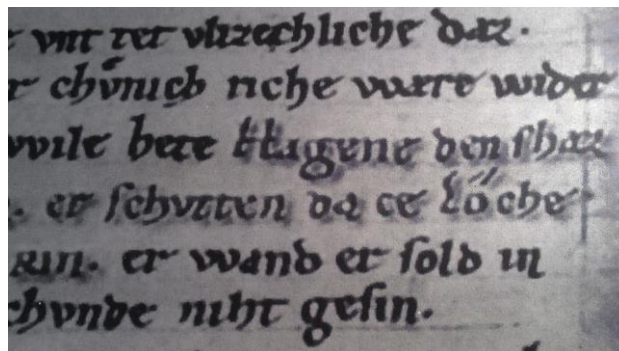 vnt tet vlizechliche daz·
r chvͤnich riche wære wider
wile hete hagene den ſhaz
. er ſchvtten da ce Lőche·
RIN. er wand er ſold in
chvnde niht geſin.